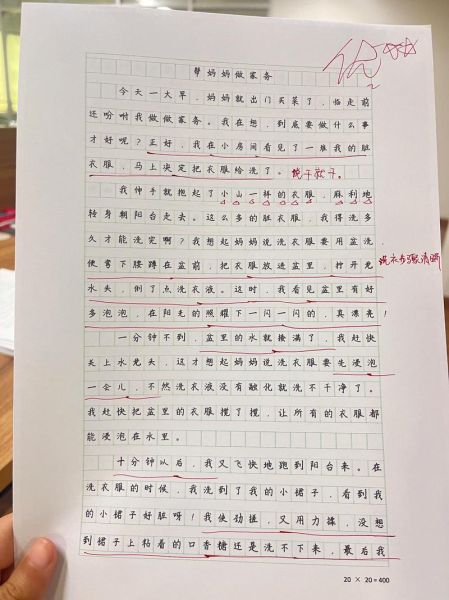 优
帮妈妈做家务
今天一大早，妈妈就出门买菜了，临走前
还吩咐我做做家务。我在想，到底要做什么事
才好呢？正好，我在小房间看见了一堆我的脏
衣服，马上决定把衣服给洗了。
说干就干。
我伸手就抱起了小山一样的衣服，麻利地
转身朝阳台走去。这么多的脏衣服，我得洗多
久才能洗完啊？我想起妈妈说洗衣服要用盆洗，
洗衣步骤清晰
便弯下腰蹲在盆前，把衣服放进盆里，拧开龙
水头，倒了点洗衣液。这时，我看见盆里有好
多泡泡，在阳光的照耀下一闪一闪的，真漂亮！
一分钟不到，盆里的水就接满了，我赶快
关上水龙头，这才想起妈妈说洗衣服要先浸泡
一会儿，不然洗衣液没有融化就洗不干净了。
我赶快把盆里的衣服搅了搅，让所有的衣服都
能浸泡在水里。
十分钟以后，我又飞快地跑到阳台来。在
洗衣服的时候，我洗到了我的小裙子，看到我
的小裙子好脏呀！我使劲搓，又用力揉，没想
到裙子上粘着的口香糖还是洗不下来，最后我
20 × 20 = 400